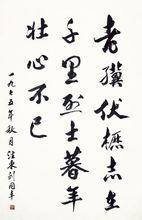 老驥伏櫪志在
千里烈士暮年
壯心不已
一九七五年秋月